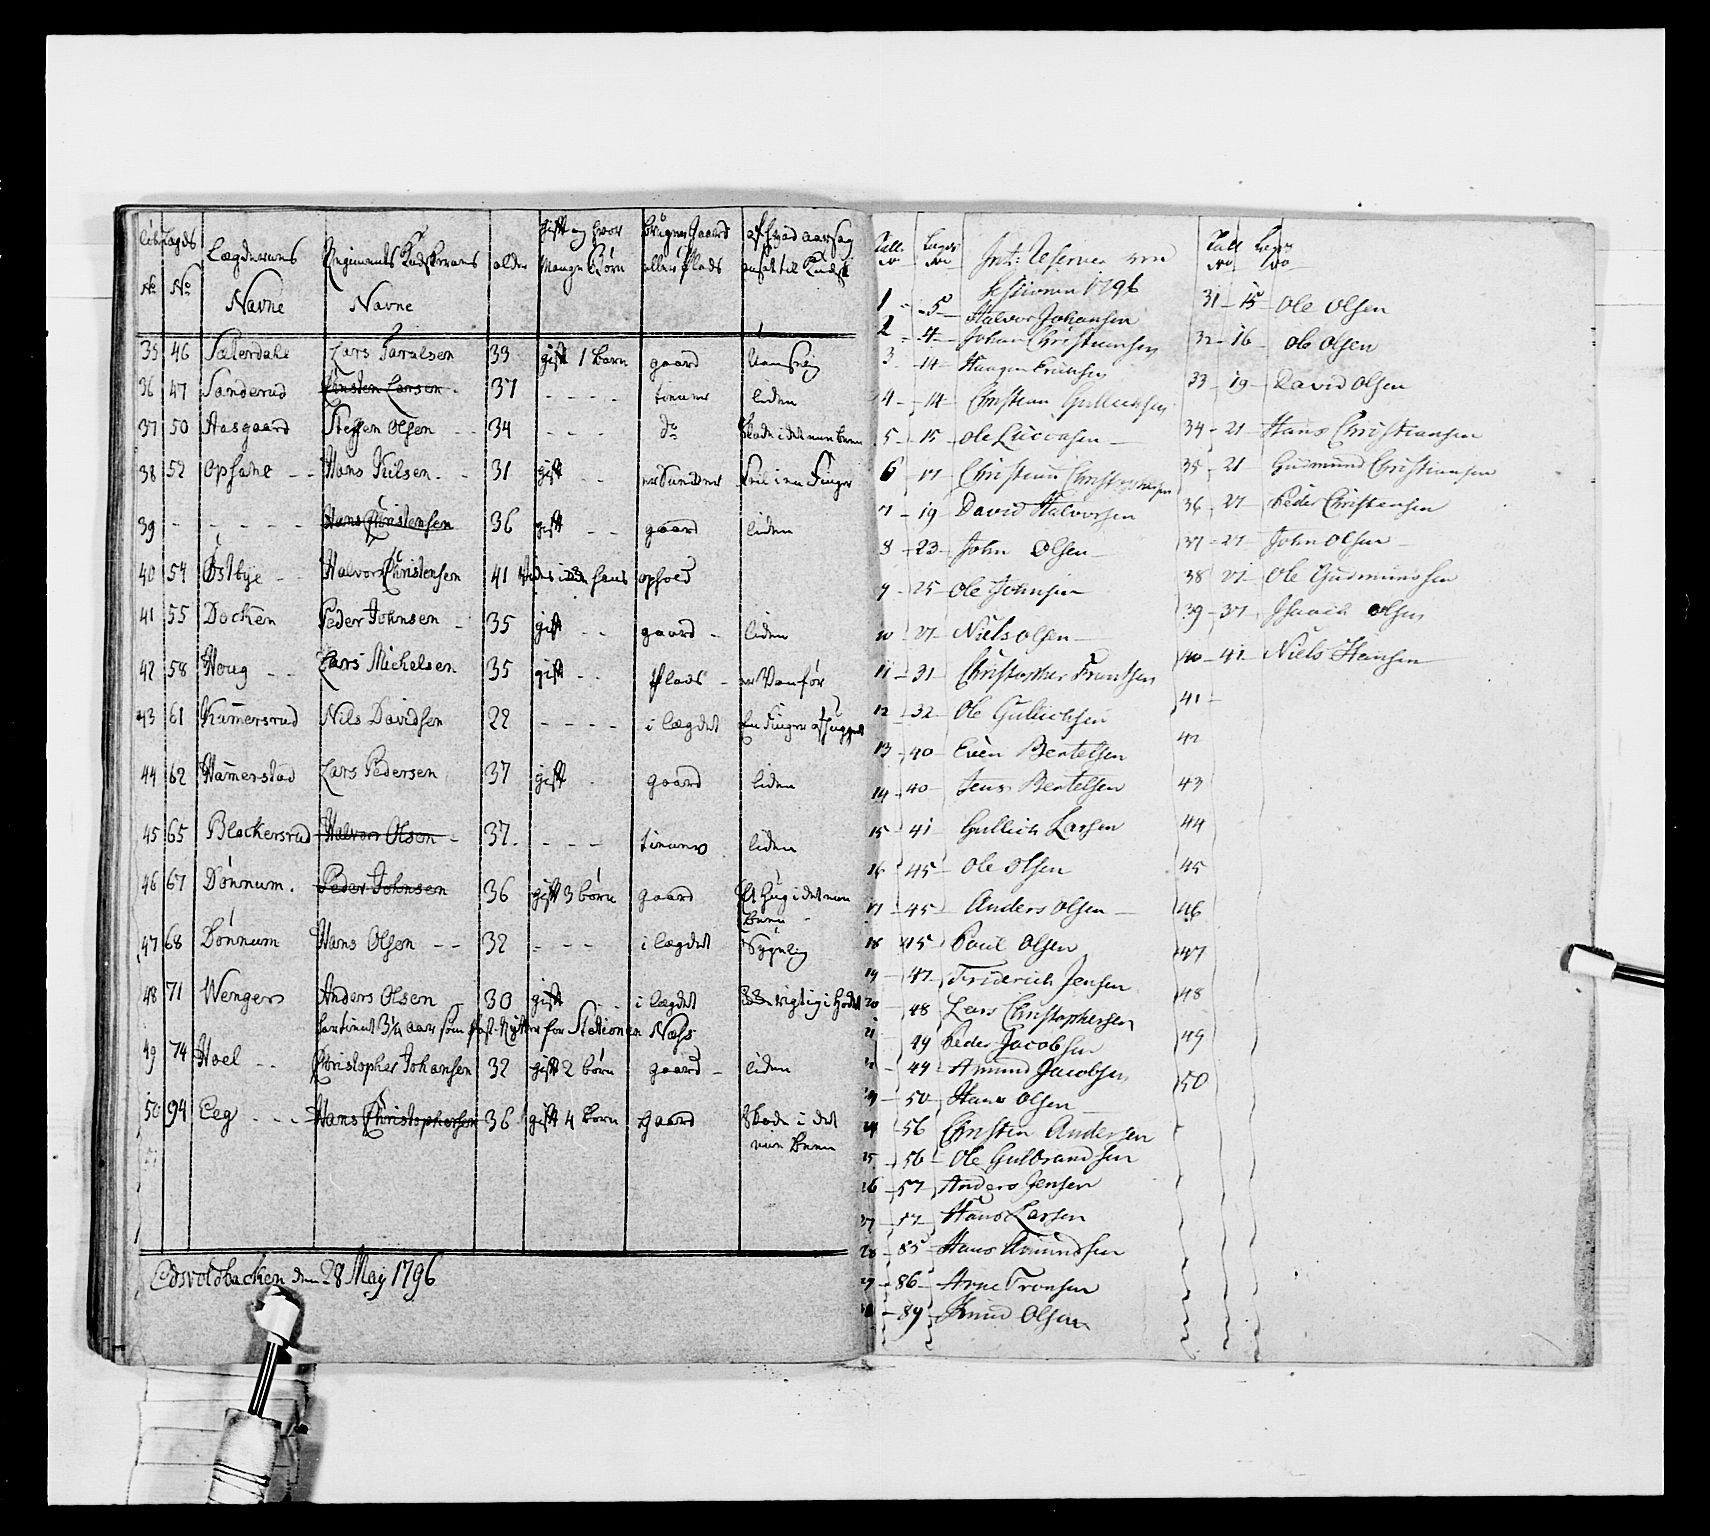 Løb Lægds Lægdernes Regiments Kudskernes alder Gift og hvor bruger Gaard af hvad aarsag
No No Navne Navne Mange Børn eller Plads ansat til Kudsk
35 46 Sæterdahl Lars Taralsen 33 gift 1 barn gaard
36 47 Sanderud Carsten Larsen 37 - - - - tienner liden
37 50 Aasgaard Steffen Olsen - - 34 - - - do Skade i det eene been
38 52 Opsahl - - Hans Nilsen - - 31 gift - - Feil i en Finger
39 - - - - - Hans Christensen 36 gift - - gaard liden
40 54 Østbye - - Halvor Christensen 41 hans ophold
41 55 Dochen Peder Johnsen - 35 gift - - gaard - liden
42 58 Houg - - Lars Michelsen 35 gift - - Plads - er Vanfør
43 61 Kummersrud Nils Davidsen 22 - - - - i lægdet En Finger afhugget
44 62 Hamerstad Lars Pedersen 37 gift - gaard liden
45 65 Blackersrud Halvor Olsen - 37 - - - - tienner liden
46 67 Dønnum. Peder Johnsen 36 gift 3 børn gaard Et Hug i det eene
Been
47 68 Dønnum Hans Olsen - - 32 - - - i lægdet Sygelig
48 71 Wenger Anders Olsen 30 gift - - i lægdet rigtig i Hodet
3 1/4 aar som for Stationen Næss
49 74 Hoel - - Christopher Johansen 32 gift 2 børn gaard - liden
50 94 Eeg - - - Hans Christophersen 36 gift 4 børn gaard Skade i det
eene Been
Edsvoldbacken den 28 May 1796
Tall No Lægds No Reserver ved
Sessionen 1796
1 - 5 - Halvor Johansen
2 - 4 - Johan Christiansen
3 - 14 - Haagen Erichsen
4 - 14 - Christian Gullichsen
5 - 15 - Ole Lucvasen -
6 - 17 - Christian Christophersen
7 - 19 David Halvorsen
8 - 23 - John Olsen -
9 - 25 - Ole Johnsen
10 - 27 - Niels Olsen -
11 - 31 - Christopher Frantsen
12 - 32 - Ole Gullichsen
13 - 40 - Even Bertelsen
14 - 40 - Jens Bertelsen
15 - 41 - Gullich Larsen
16 - 45 - Ole Olsen
17 - 45 - Anders Olsen -
18 - 45 - Paul Olsen
19 - 47 - Friderich Jensen
20 - 48 Lars Christophersen
21 - 49 Peder Jacobsen
22 - 49 - Amund Jacobsen
23 - 50 - Hans Olsen
24 - 56 Christen Andersen
25 - 56 - Ole Gulbrandsen
26 - 57 - Anders Jensen
27 - 57 - Hans Larsen
28 - 85 - Hans Amundsen
29 - 86 - Arne Tronsen
30 - 89 - Knud Olsen
Tall No Lægds No
31 - 15 - Ole Olsen
32 - 16 - Ole Olsen
33 - 19 - David Olsen
34 - 21 - Hans Christiansen
35 - 21 Gudmund Christiansen
36 - 27 - Peder Christiansen
37 - 27 - John Olsen -
38 27 - Ole Gudmundsen
39 - 37 - Isaach Olsen
40 - 41 - Niels Hansen
41 -
42
43
44
45
46
47
48
49
50